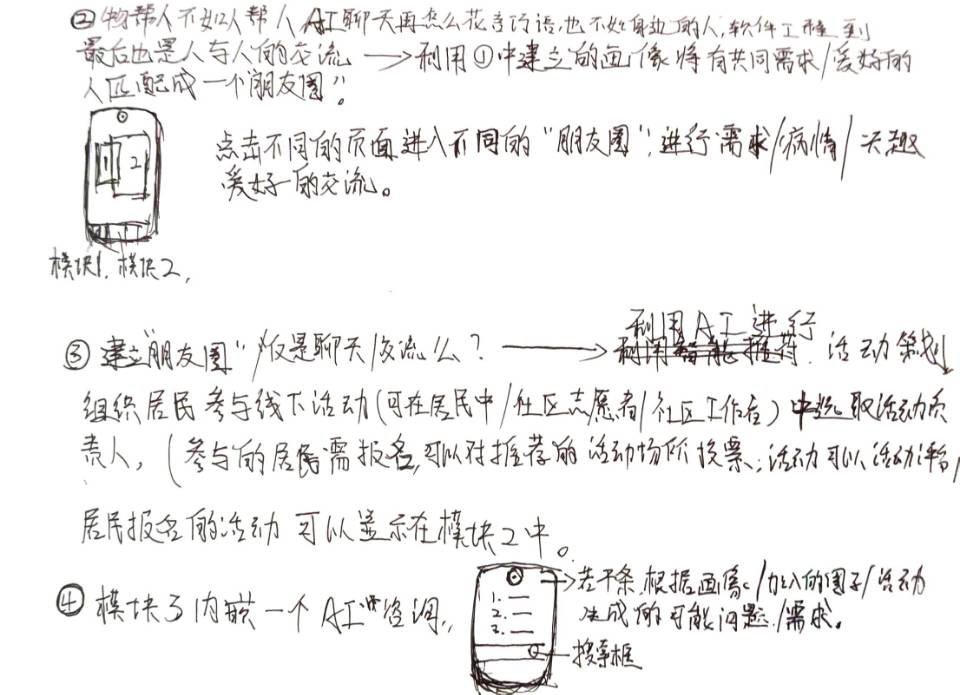 ② 物帮人不如以人帮人 AI聊天再怎么花言巧语,也不如身边的人,软件工程到
最后也是人与人的交流 → 利用①中建立的画像将有共同需求/爱好的
人匹配成一个"朋友圈"。
2
点击不同的页面进入不同的"朋友圈",进行需求/病情/兴趣
爱好的交流。
模块1. 模块2,
利用AI进行
③ 建立"朋友圈"仅是聊天/交流么? → 活动策划
组织居民参与线下活动(可在居民中/社区志愿者/社区工作者)中选取活动负
责人,(参与的居民需报名,可以对推荐的活动场所投票,活动可以活动评
居民报名的活动可以显示在模块2中。
④ 模块3内嵌一个AI"咨询"
1. —
2. —
3. —
→若干条,根据画像/加入的圈子/活动
生成的可能问题/需求。
搜索框